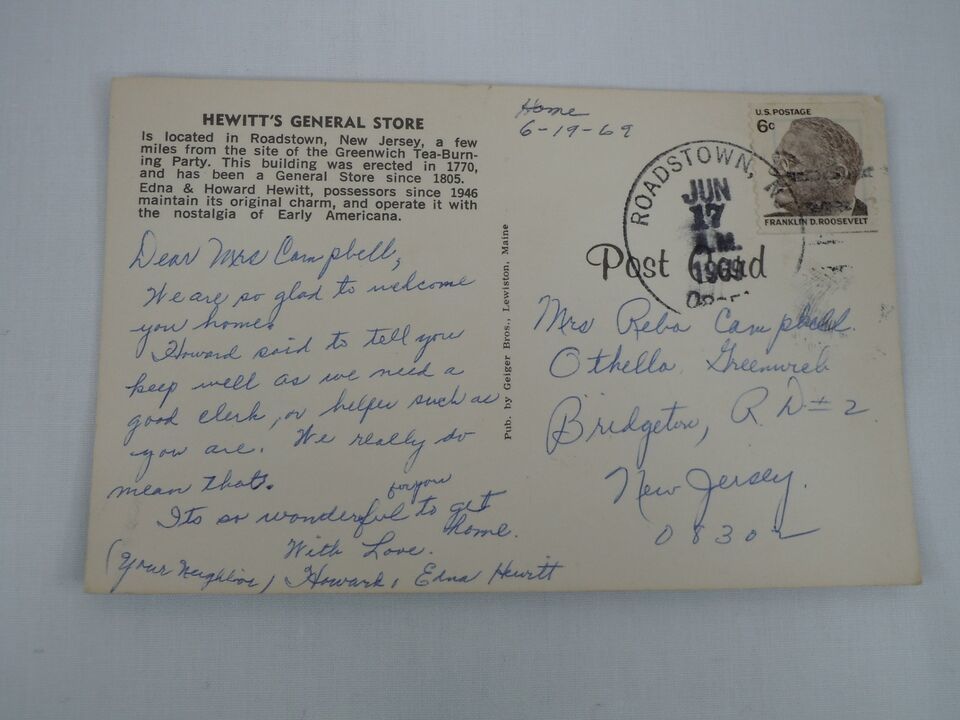 HEWITT'S GENERAL STORE
Is located in Roadstown, New Jersey, a few
miles from the site of the Greenwich Tea-Burn-
ing Party. This building was erected in 1770,
and has been a General Store since 1805.
Edna & Howard Hewitt, possessors since 1946
maintain its original charm, and operate it with
the nostalgia of Early Americana.
Dear Mrs Campbell,
We are so glad to welcome
you home.
Howard said to tell you
keep well as we need a
good clerk, or helper such as
you are. We really do
mean that.
for you
Its so wonderful to get
home.
With Love.
(Your Neighbor) Howard, Edna Hewitt
Pub. by Geiger Bros., Lewiston, Maine
Home
6-19-69
ROADSTOWN, N
JUN
17
A.M.
1969
U.S. POSTAGE
6c
FRANKLIN D. ROOSEVELT
Post Card
Mrs Reba Campbell.
Othello Greenwich
Bridgeton, R D # 2
New Jersey.
08302